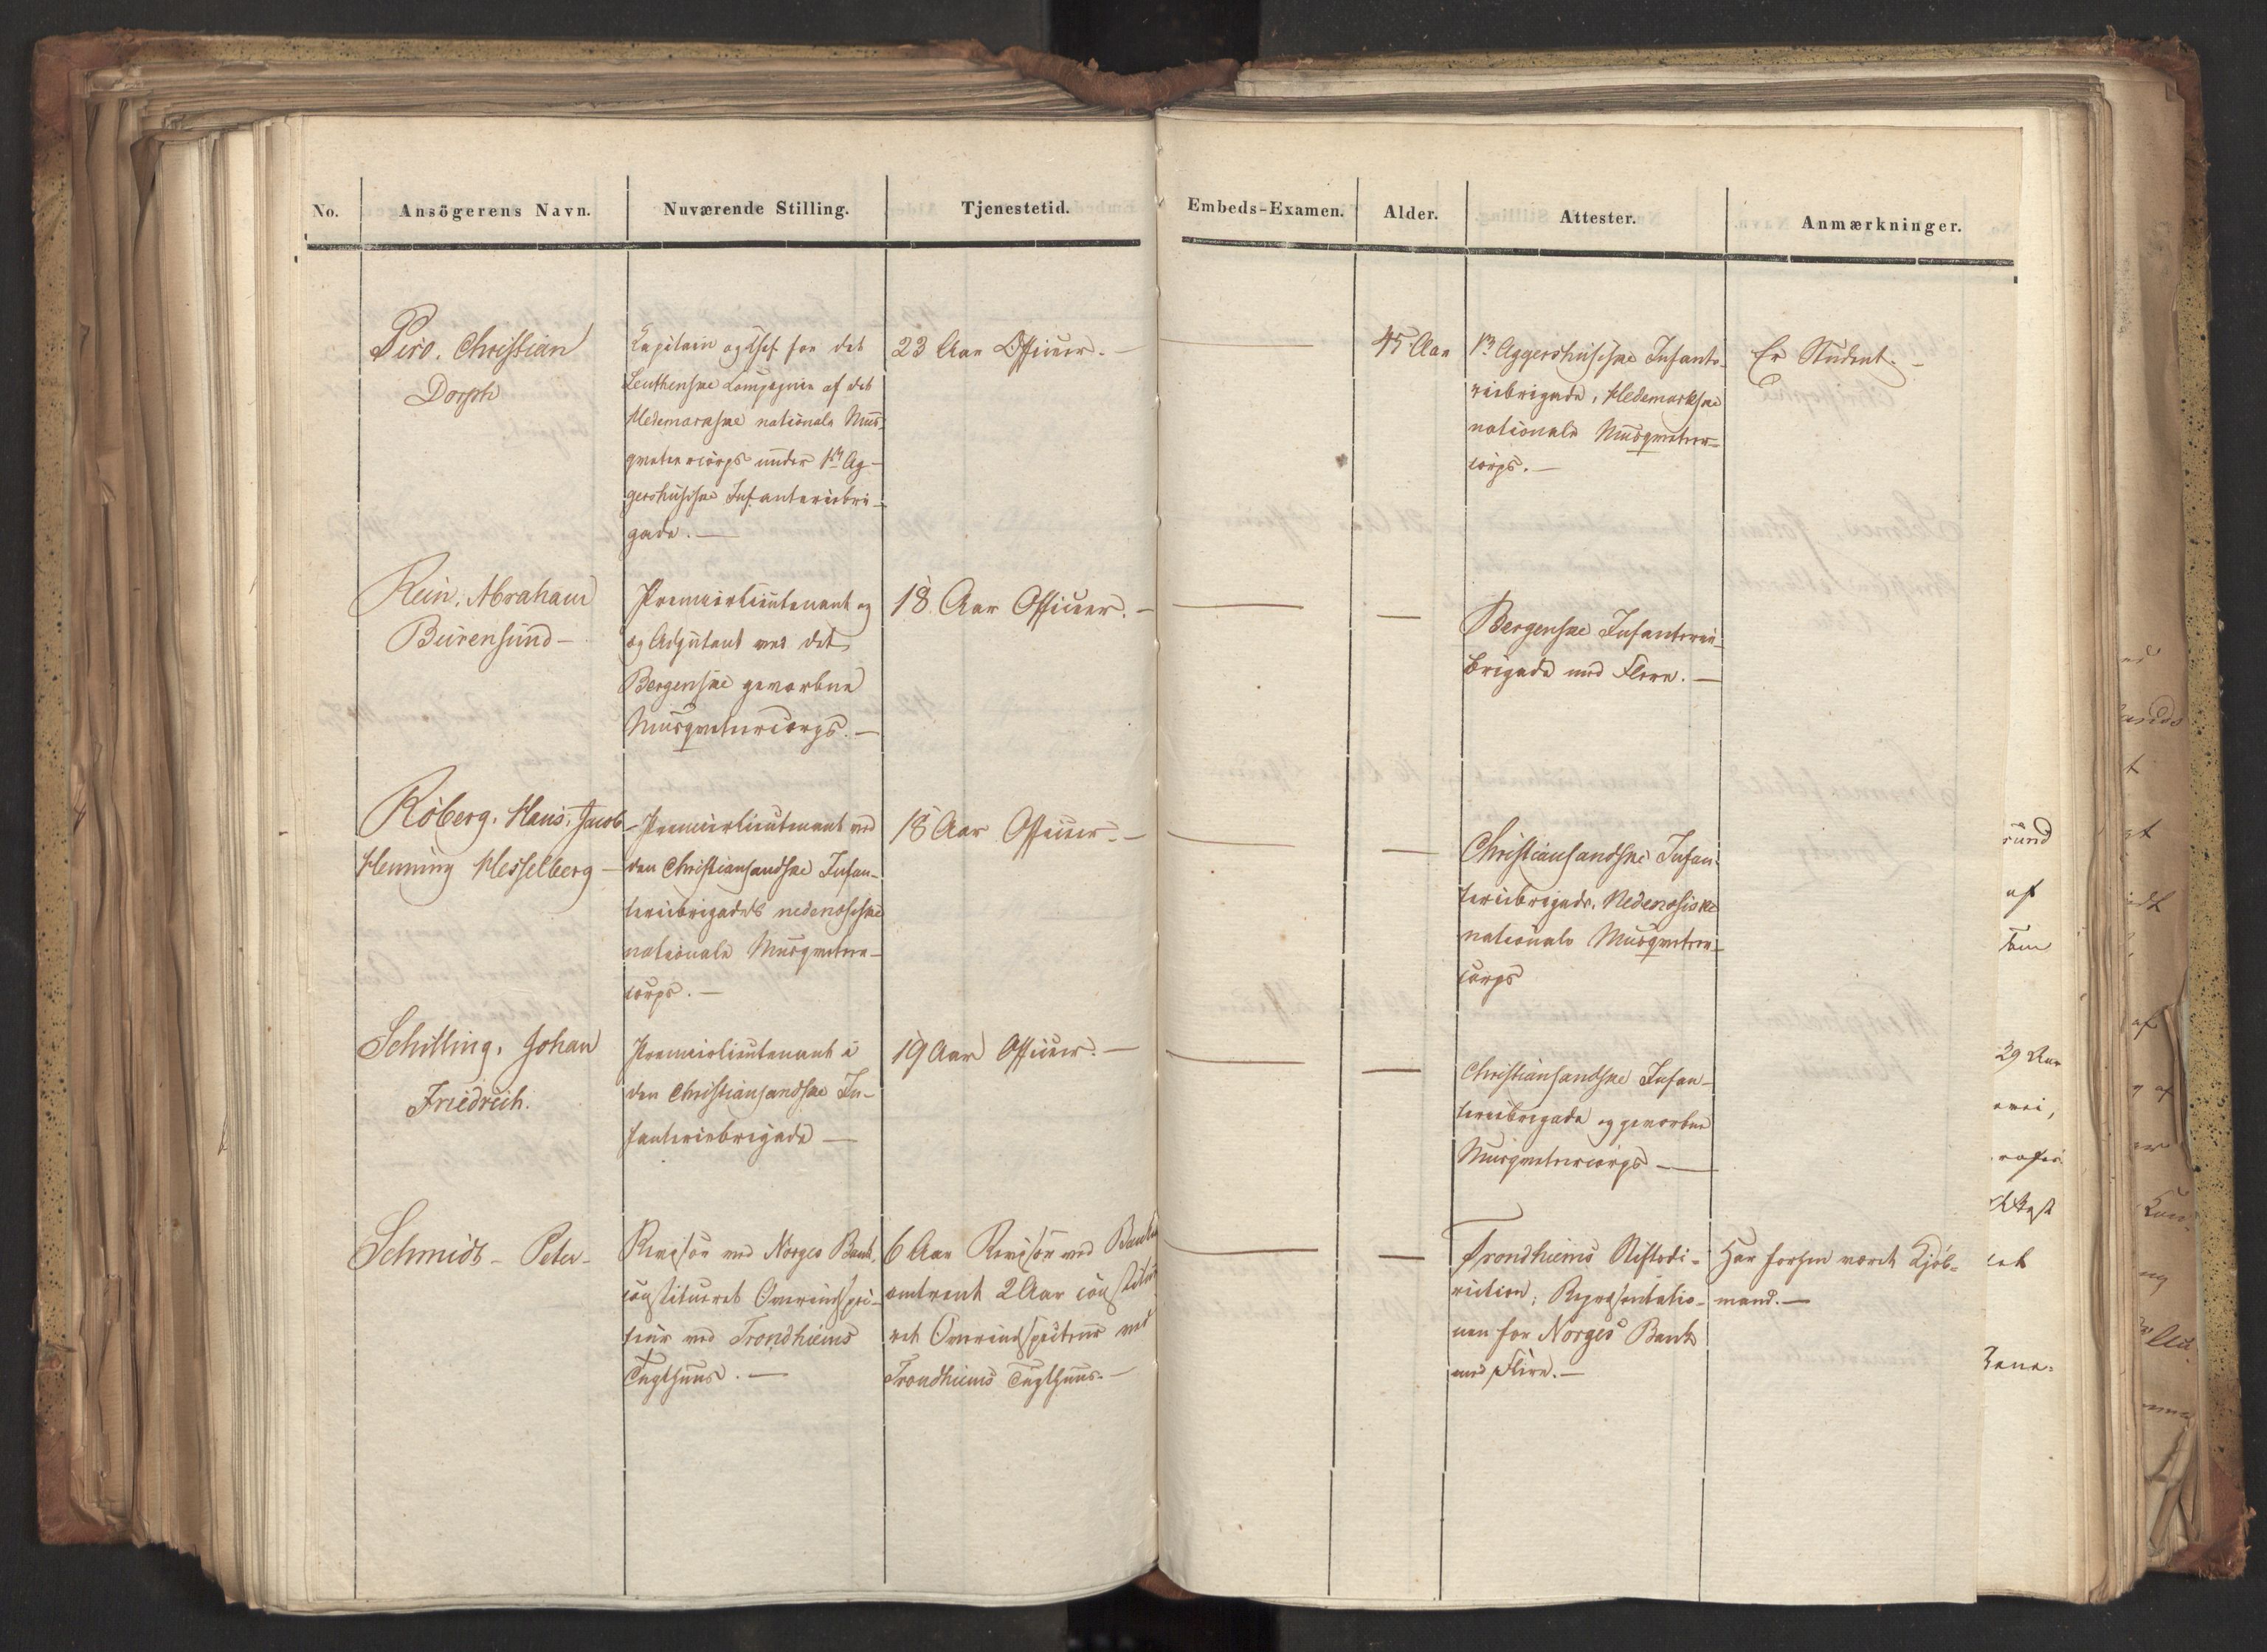 No.
Ansögerens Navn.
Nuværende Stilling.
Tjenestetid.
Embeds-Examen.
Alder.
Attester.
Anmærkninger.
Piro, Christian
Dorph
Capitain og Chef for det
Leuthenske Compagnie af det
Hedemarkske nationale Mus-
qveteercorps under 1ste Ag-
gershusiske Infanteriebri-
gade. —
23 Aar Officier. —
—
45 Aar
1ste Aggershusiske Infante-
riebrigade, Hedemarkske
nationale Musqveteer-
corps. —
Er Student. —
Rein, Abraham
Bürensund —
Premierlieutenant og
og Adjutant ved det
Bergenske gevorbne
Musqveteercorps. —
18 Aar Officier. —
—
—
Bergenske Infanterie-
brigade med Flere. —
Röberg, Hans, Jacob
Henning Hesselberg —
Premierlieutenant ved
den Christiansandske Infan-
teriebrigades nedenæsiske
nationale Musqveteer-
corps. —
18 Aar Officier. —
—
—
Christiansandske Infan-
teriebrigade, Nedenæsiske
nationale Musqveteer-
corps
Schilling, Johan
Friedrich.
Premierlieutenant i
den Christiansandske In-
fanteriebrigade —
19 Aar Officier. —
—
—
Christiansandske Infan-
teriebrigade og gevorbne
Musqveteercorps —
Schmidt — Peter —
Revisor ved Norges Bank,
constitueret Overinspec-
teur ved Trondhiems
Tugthuus. —
6 Aar Revisor ved Banken
omtrent 2 Aar constitue-
ret Overinspecteur ved
Trondhiems Tugthuus. —
—
—
Trondhiems Stiftsdi-
rection, Repræsentatio-
nen for Norges Bank
med Flere. —
Har forhen været Kjöb-
mand. —
sund
af
29 Aar